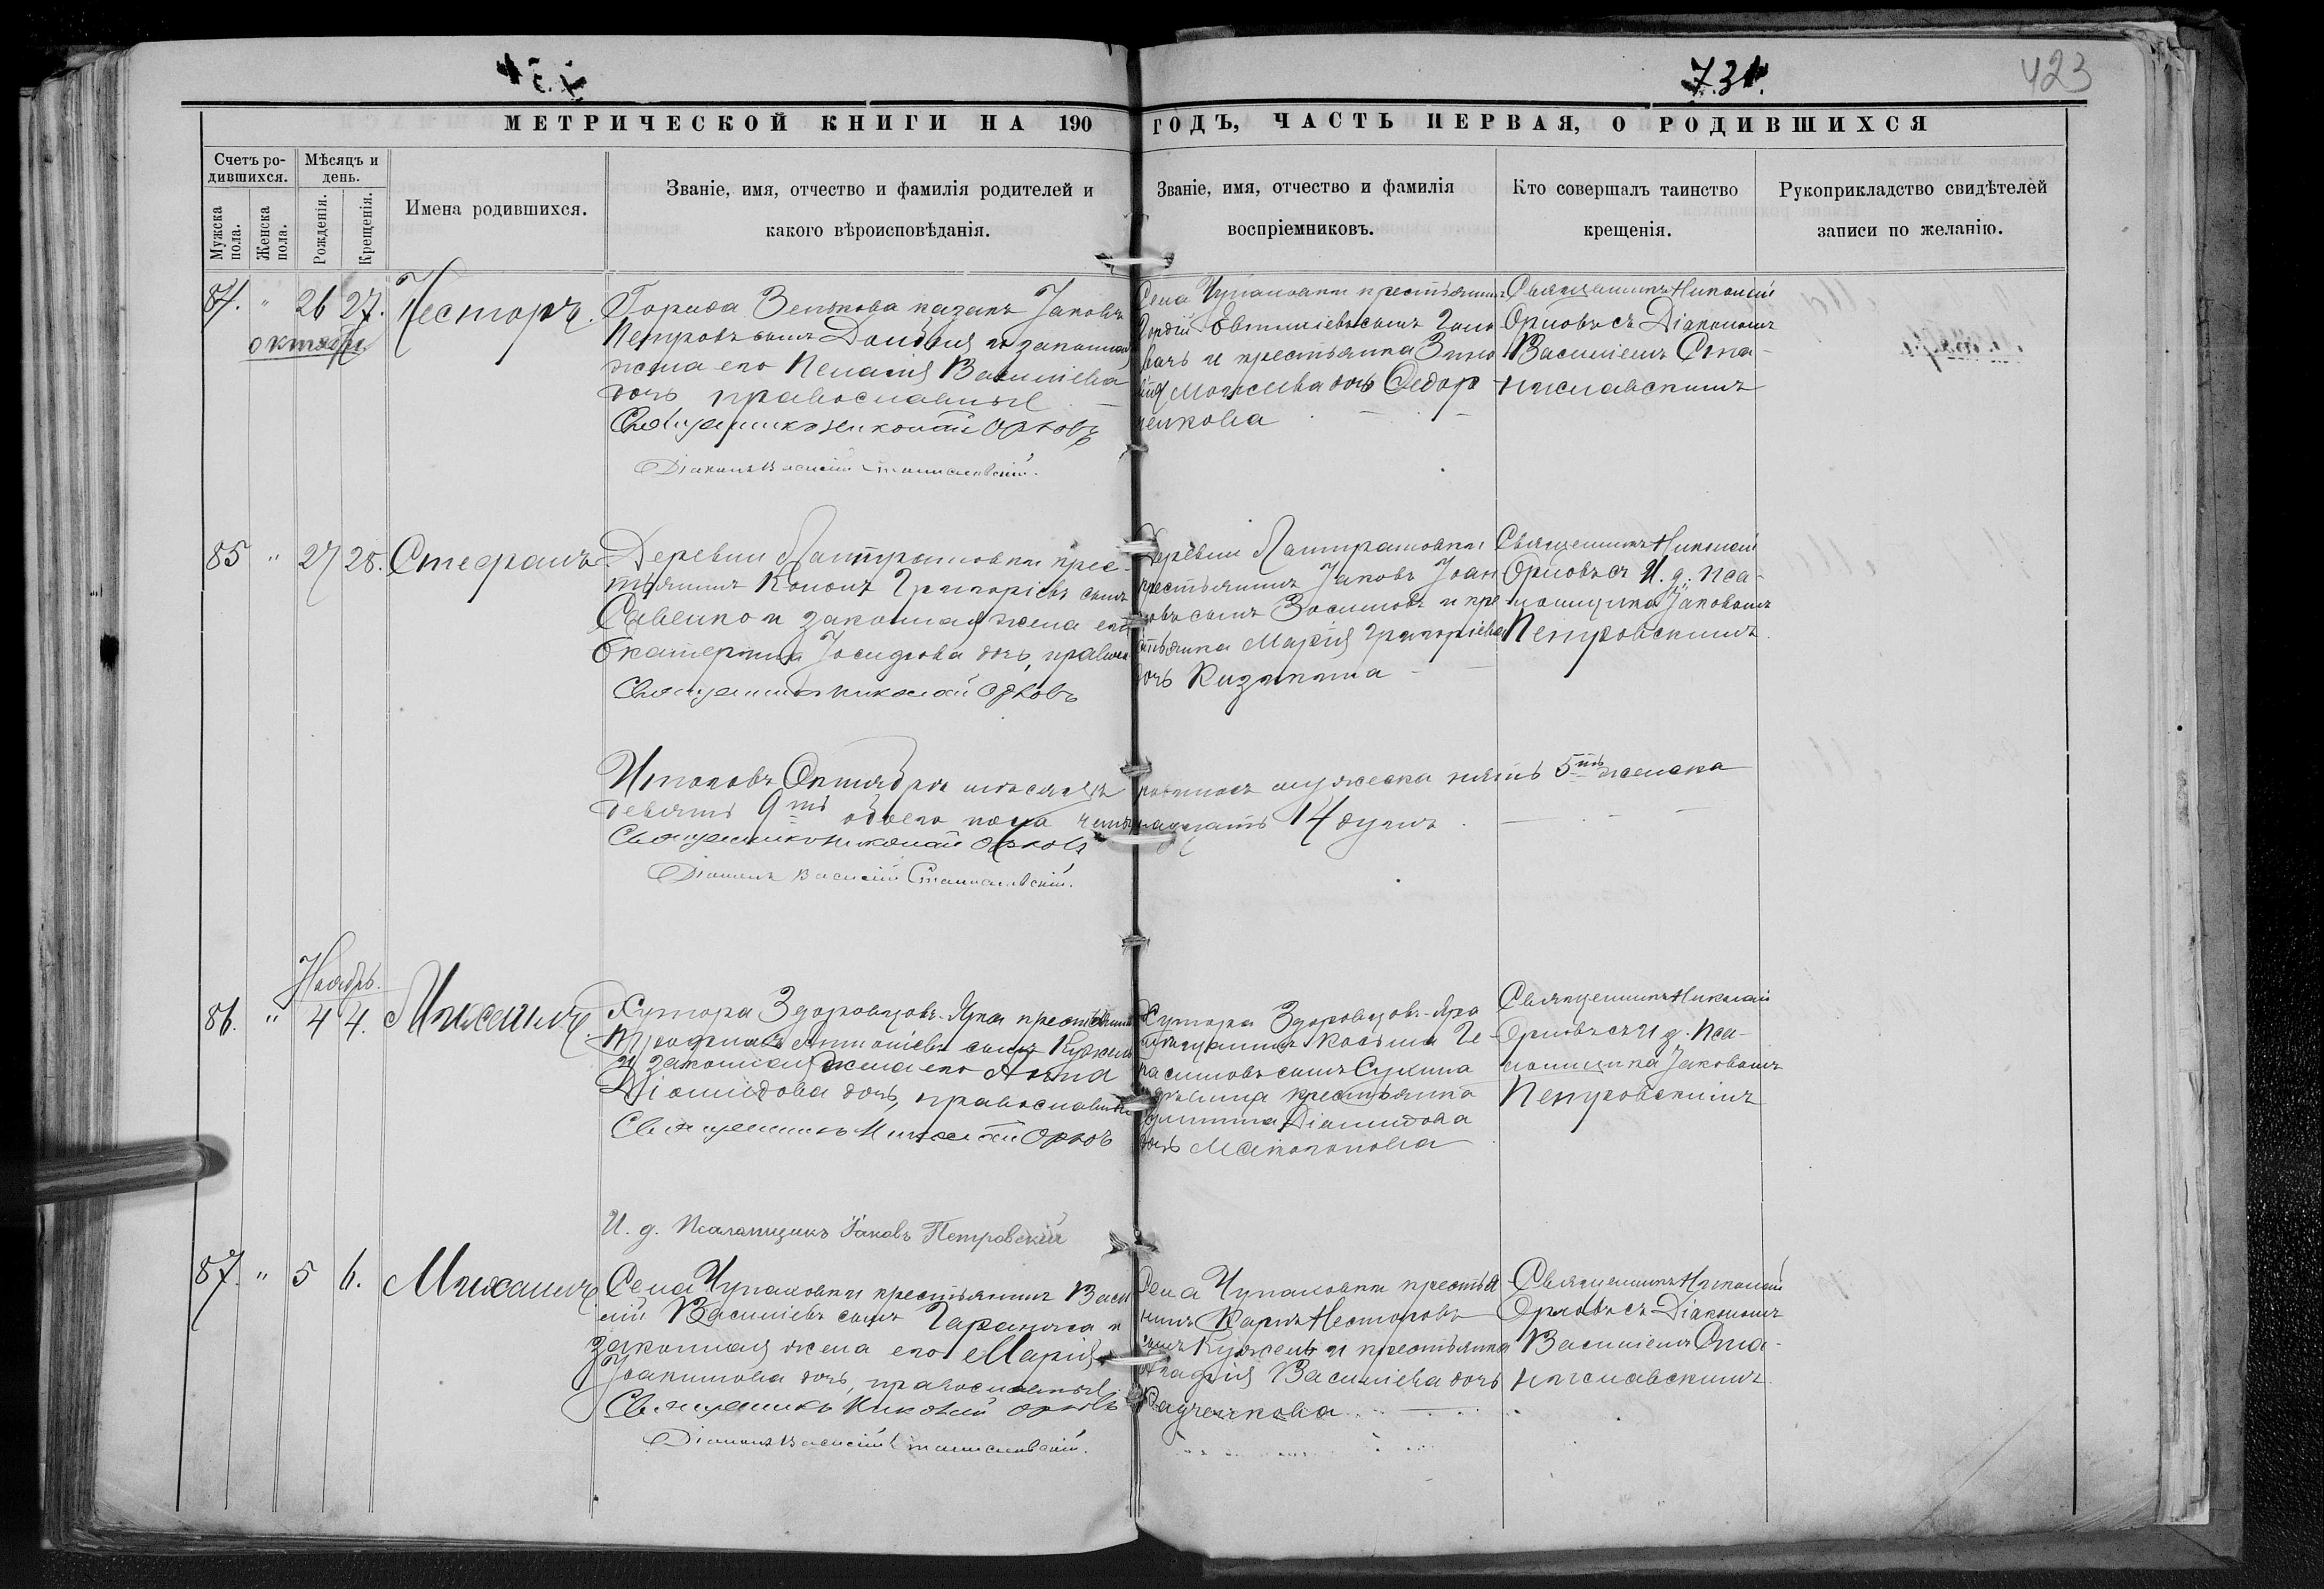 7.31.
423
МЕТРИЧЕСКОЙ КНИГИ НА 190 ГОДЪ, ЧАСТЬ ПЕРВАЯ, О РОДИВШИХСЯ
Счетъ ро-
дившихся.
Мужска
пола.
Женска
пола.
Мѣсяцъ и
день.
Рожденія.
Крещенія.
Имена родившихся.
Званіе, имя, отчество и фамилія родителей и
какого вѣроисповѣданія.
Званіе, имя, отчество и фамилія
воспріемниковъ.
Кто совершалъ таинство
крещенія.
Рукоприкладство свидѣтелей
записи по желанію.
84. " 26 27.
октября
Несторъ.
Города Зенькова казакъ Іаковъ
Петровъ сынъ и законная
жена его Пелагія Василіева
дочь православные
Священникъ Николай Орловъ
Діаконъ Василій Станиславскій.
Села Чупаковки крестьянинъ
Гордій Евтихіевъ сынъ Голо
вачъ и крестьянка Зино
вія дочь Федор
ченкова
Священникъ Николай
Орловъ съ Діакономъ
Василіемъ Ста-
ниславскимъ
85 " 27 28.
Стефанъ
Деревни крес-
тьянинъ Кононъ Григоріевъ сынъ
Савенко и законная жена его
Екатерина дочь, правосл
Священникъ Николай Орловъ
Деревни
крестьянинъ Іаковъ Іоан
новъ сынъ и кре
стьянка Марія Григоріева
дочь
Священникъ Николай
Орловъ съ И. д. Пса-
ломщика Іаковомъ
Петровскимъ.
Итого въ Октябрѣ мѣсяцѣ мужеска пять 5ть женска
девять 9ть обоего пола четырнадцать 14 душъ
Священникъ Николай Орловъ
Діаконъ Василій Станиславскій.
Ноябрь.
86. " 4 4.
Михаилъ.
Хутора Здоровцовъ-Яра крестьянинъ
Трофимъ Антоніевъ сынъ
и законная жена его Анна
Діомидова дочь, православные
Священникъ Николай Орловъ
И. д. Псаломщикъ Іаковъ Петровскій
Хутора Здоровцовъ-Яра
Косьма Ге-
расимовъ сынъ Сухина
крестьянка
Діомидова
дочь
Священникъ Николай
Орловъ съ И. д. Пса-
ломщика Іаковомъ
Петровскимъ
87. " 5 6.
Михаилъ
Села Чупаковки крестьянинъ Васи
лій Василіевъ сынъ и
законная жена его Марія
Іоакимова дочь, православные.
Священникъ Николай Орловъ
Діаконъ Василій Станиславскій.
Села Чупаковки крестья
нинъ Карпъ Несторовъ
сынъ и крестьянка
Агафія Василіева дочь
Радченкова
Священникъ Николай
Орловъ съ Діакономъ
Василіемъ Ста-
ниславскимъ.